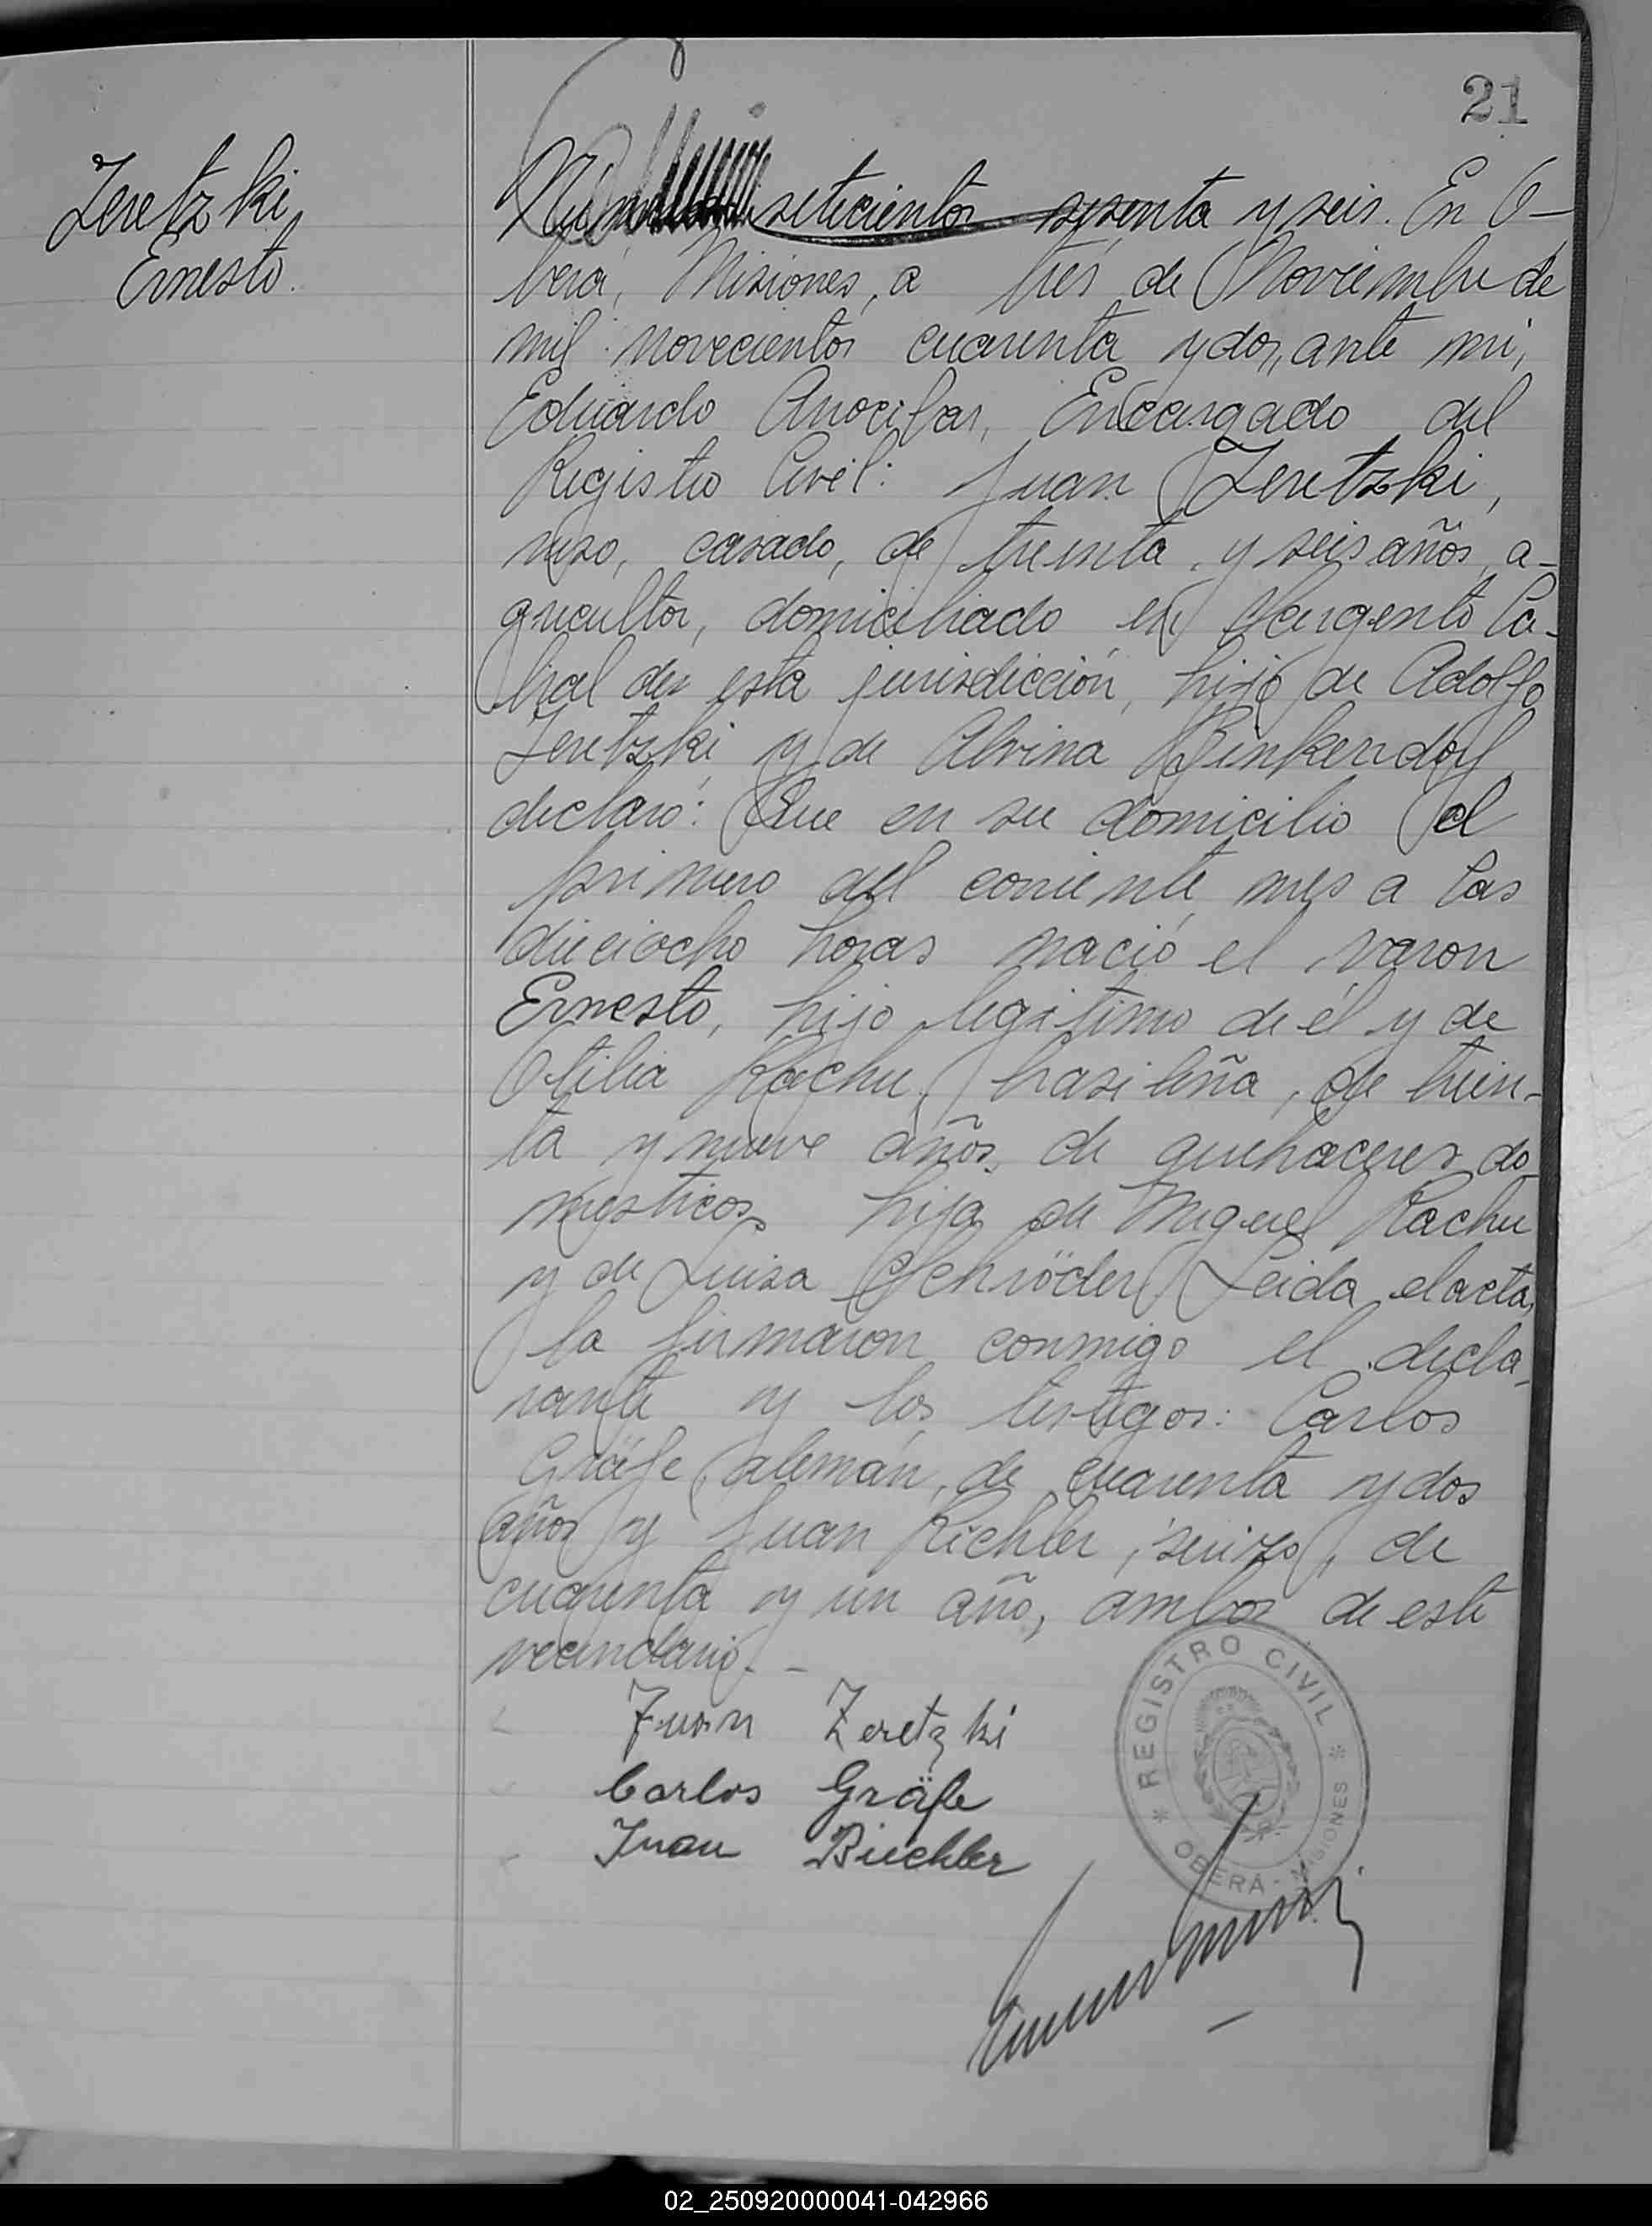 21
Zeretzki
Ernesto.
Número setecientos sesenta y seis. En O-
berá, Misiones, a tres de Noviembre de
mil novecientos cuarenta y dos, ante mi,
Eduardo Encargado del
Registro Civil: Juan Zeretzki,
ruso, casado, de treinta y seis años, a-
gricultor, domiciliado en Sargento Ca-
bral de esta jurisdicción, hijo de Adolfo
Zeretzki y de Alvina Binkendorf
declaró: Que en su domicilio el
primero del corriente mes a las
dieciocho horas nació el varon
Ernesto, hijo legitimo de él y de
Otilia Rachu, brasileña, de trein-
ta y nueve años, de quehaceres do
mesticos, hija de Miguel Rachu
y de Luisa Schröder. Leida el acta,
la firmaron conmigo el decla-
rante y los testigos: Carlos
Gräfe, alemán, de cuarenta y dos
años y Juan suizo, de
cuarenta y un año, ambos de este
vecindario. -
Juan Zeretzki
Carlos Gräfe
Juan Büchler
* REGISTRO CIVIL *
OBERÁ - MISIONES
02_250920000041-042966